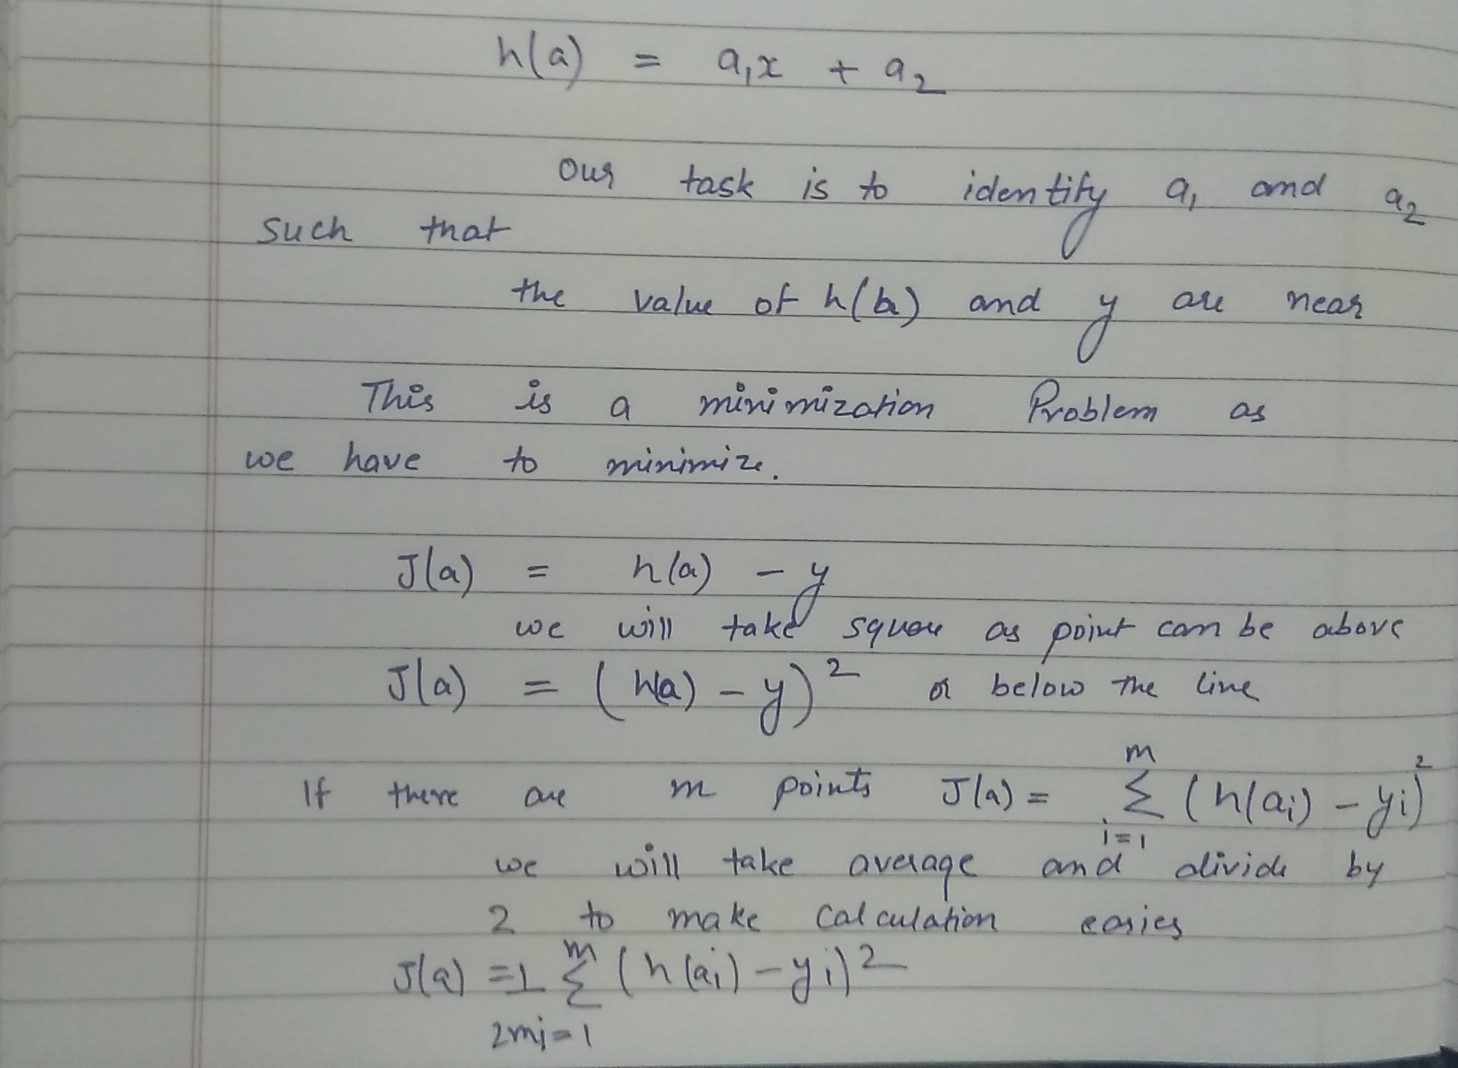 h(a) = a₁x + a₂
Our task is to identify a₁ and a₂
such that
the value of h(a) and y are near
This is a minimization Problem as
we have to minimize.
J(a) = h(a) - y
we will take square as point can be above
J(a) = (h(a) - y)² or below the line
If there are m points J(a) = Σᵐᵢ₌₁ (h(aᵢ) - yᵢ)²
we will take average and divide by
2 to make calculation easier
J(a) = 1/2m Σᵐᵢ₌₁ (h(aᵢ) - yᵢ)²